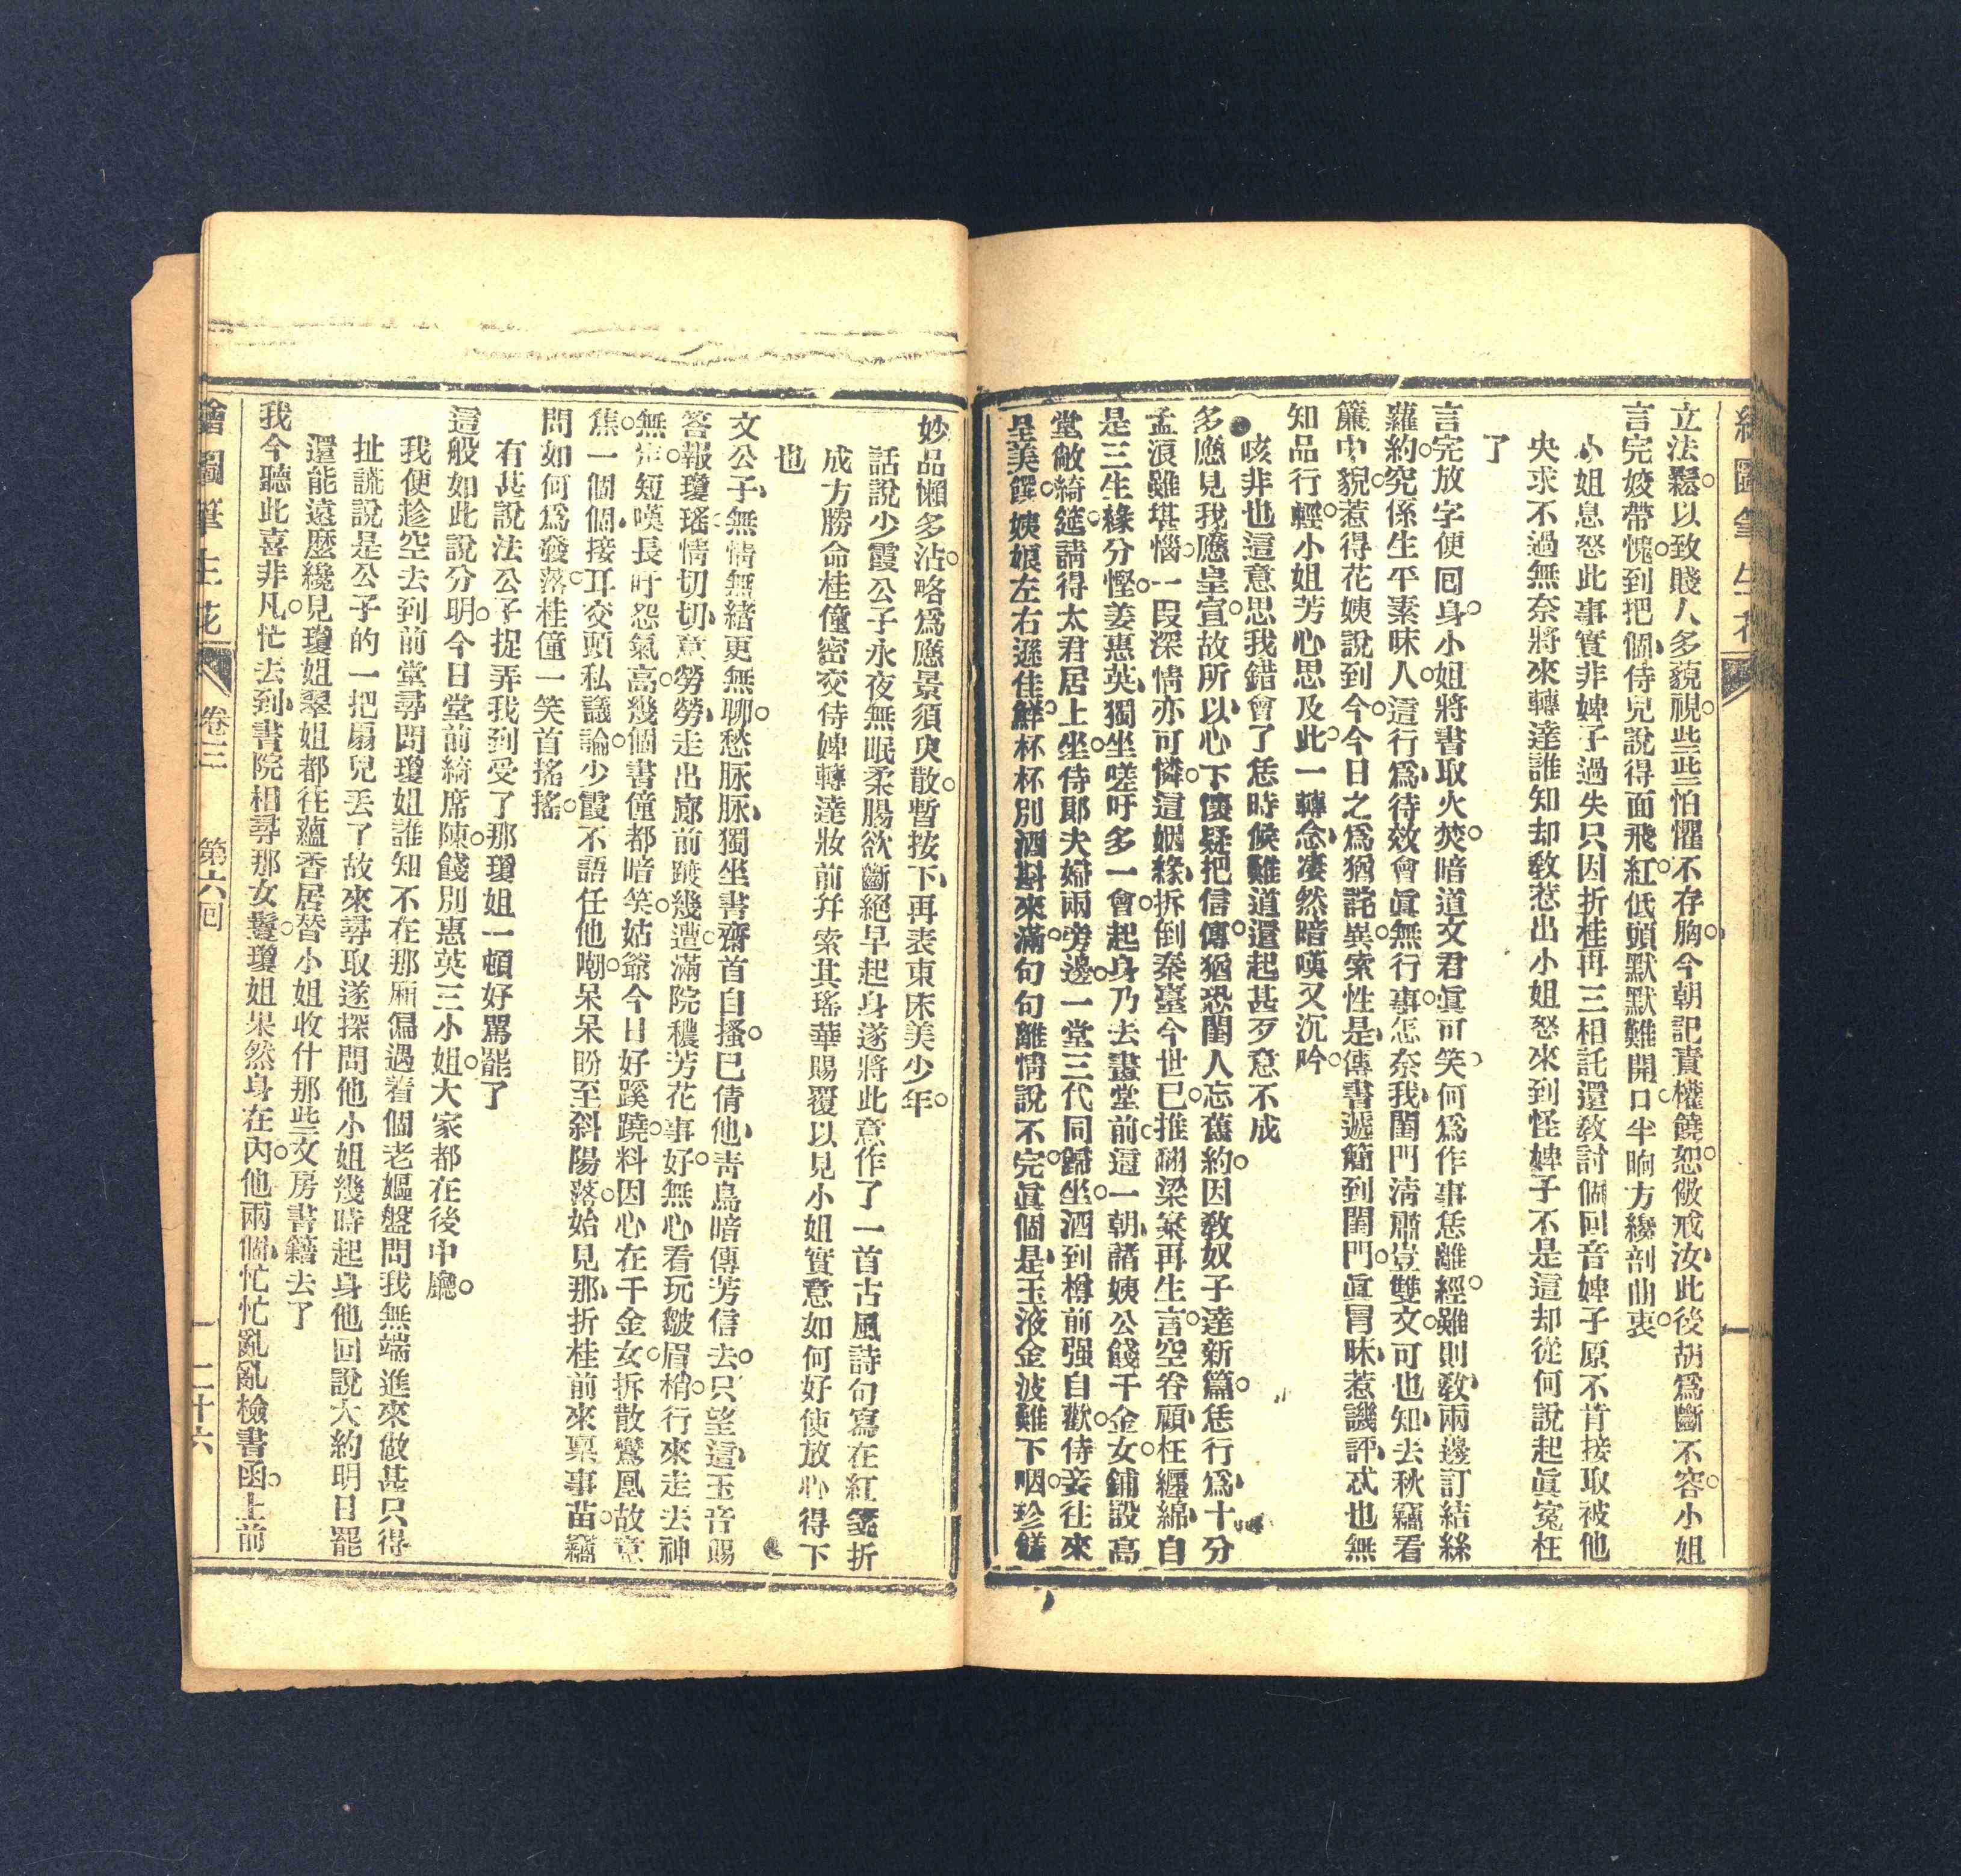 繪圖筆生花
立法鬆。以致賤人多藐視。些些怕懼不存胸。今朝記責權饒恕。儆戒汝、此後胡爲斷不容。小姐
言完姣帶愧。到把個、侍兒說得面飛紅。低頭默默難開口。半晌方纔剖曲衷。
小姐息怒此事實非婢子過失只因折桂再三相託還敎討個回音婢子原不肯接取被他
央求不過無奈將來轉達誰知却敎惹出小姐怒來到怪婢子不是這却從何說起眞寃枉
了
言完放字便囘身。小姐將書取火焚。暗道文君眞可笑、何爲作事恁離經。雖則敎、兩邊訂結絲
蘿約。究係生平素昧人。這行爲、待效會眞無行事。怎奈我、閨門淸肅豈雙文。可也知、去秋竊看
簾中貌。惹得花姨說到今。今日之爲猶詫異。索性是、傳書遞簡到閨門。眞冒昧、惹譏評、忒也無
知品行輕。小姐芳心思及此。一轉念、凄然暗嘆又沉吟。
咳非也這意思我錯會了恁時候難道還起甚歹意不成
多應見我應皇宣。故所以、心下懷疑把信傳。猶恐閨人忘舊約。因敎奴子達新篇。恁行爲、十分
孟浪雖堪惱。一段深情亦可憐。這姻緣、拆倒秦臺今世已。推翻梁案再生言。空眷顧、枉纒綿、自
是三生緣分慳。姜惠英、獨坐嗟吁多一會。起身乃去畫堂前。這一朝、諸姨公餞千金女。鋪設高
堂敞綺筵。請得太君居上坐。侍郞夫婦兩旁邊。一堂三代同歸坐。酒到樽前强自歡。侍妾往來
呈美饌。姨娘左右遜佳鮮。杯杯別酒斟來滿。句句離情說不完。眞個是、玉液金波難下咽。珍饈
妙品懶多沾。略爲應景須臾散。暫按下、再表東床美少年。
話說少霞公子永夜無眠柔腸欲斷絕早起身遂將此意作了一首古風詩句寫在紅箋折
成方勝命桂僮密交侍婢轉達妝前幷索其瑤華賜覆以見小姐實意如何好使放心得下
也
文公子、無情無緖更無聊。愁脉脉、獨坐書齋首自搔。已倩他、靑鳥暗傳芳信去。只望這、玉音賜
答報瓊瑤。情切切、意勞勞、走出廊前踱幾遭。滿院穠芳花事好。無心看玩皺眉梢。行來走去神
無定。短嘆長吁怨氣高。幾個書僮都暗笑。姑爺今日好蹊蹺。料因心在千金女。拆散鸞凰故意
焦。一個個、接耳交頭私議論。少霞不語任他嘲。呆呆盼至斜陽落。始見那、折桂前來稟事苗。竊
問如何爲發落。桂僮一笑首搖搖。
有甚說法公子捉弄我到受了那瓊姐一頓好罵罷了
這般如此說分明。今日堂前綺席陳。餞別惠英三小姐。大家都在後中廳。
我便趁空去到前堂尋問瓊姐誰知不在那厢偏遇着個老嫗盤問我無端進來做甚只得
扯謊說是公子的一把扇兒丟了故來尋取遂探問他小姐幾時起身他回說大約明日罷
還能遠麽纔見瓊姐翠姐都往蘊香居替小姐收什那些文房書籍去了
我今聽此喜非凡。忙去到、書院相尋那女鬟。瓊姐果然身在內。他兩個、忙忙亂亂檢書函。上前
繪圖筆生花
卷三
第六囘
一二十六